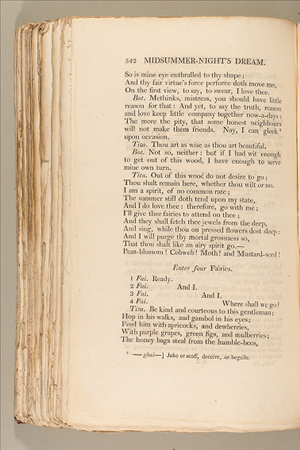 342 MIDSUMMER-NIGHT'S DREAM.
So is mine eye enthralled to thy shape;
And thy fair virtue's force perforce doth move me,
On the first view, to say, to swear, I love thee.
Bot. Methinks, mistress, you should have little
reason for that: And yet, to say the truth, reason
and love keep little company together now-a-days:
The more the pity, that some honest neighbours
will not make them friends. Nay, I can gleek*
upon occasion.
Tita. Thou art as wise as thou art beautiful.
Bot. Not so, neither: but if I had wit enough
to get out of this wood, I have enough to serve
mine own turn.
Tita. Out of this wood do not desire to go;
Thou shalt remain here, whether thou wilt or no.
I am a spirit, of no common rate;
The summer still doth tend upon my state,
And I do love thee: therefore, go with me;
I'll give thee fairies to attend on thee;
And they shall fetch thee jewels from the deep,
And sing, while thou on pressed flowers dost sleep:
And I will purge thy mortal grossness so,
That thou shalt like an airy spirit go.—
Peas-blossom! Cobweb! Moth! and Mustard-seed!
Enter four Fairies.
1 Fai. Ready.
2 Fai. And I.
3 Fai. And I.
4 Fai. Where shall we go?
Tita. Be kind and courteous to this gentleman;
Hop in his walks, and gambol in his eyes;
Feed him with apricocks, and dewberries,
With purple grapes, green figs, and mulberries;
The honey bags steal from the humble-bees,
* — gleek—] Joke or scoff, deceive, or beguile.